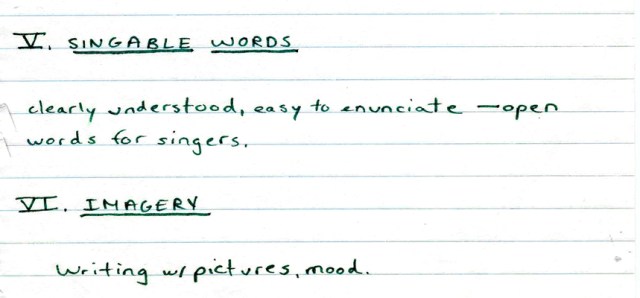 V. SINGABLE WORDS
clearly understood, easy to enunciate — open
words for singers.
VI. IMAGERY
Writing w/ pictures, mood.